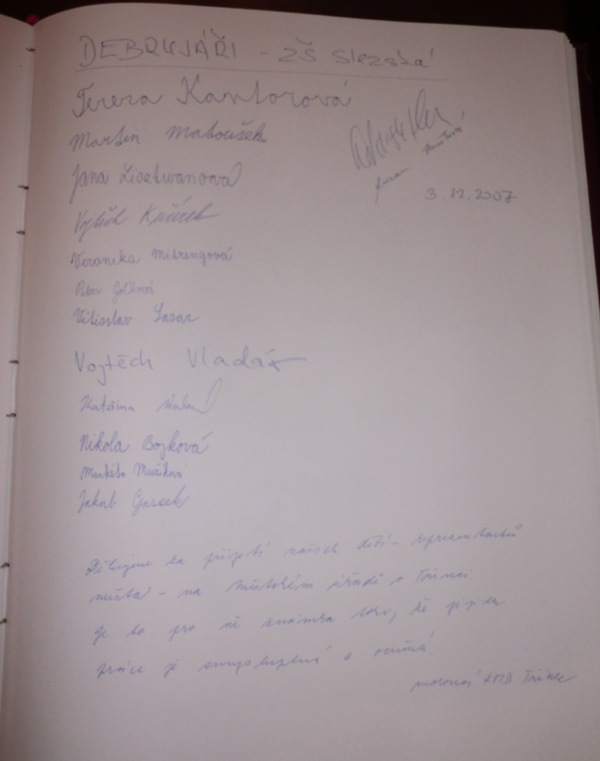 DEBRUJÁŘI - ZŠ Slezská
Tereza Kantorová
Martin Matoušek
Jana Lisztwanová
Vojtěch
3.12.2007
Veronika Mitrengová
Petra
Vítězslav Lazar
Vojtěch Vladář
Kateřina
Nikola Bojková
Markéta Mužíková
Jakub
Děkujeme za přijetí našich dětí - reprezentantů
města - na městském úřadě v Třinci
je to pro ně známka toho, že jejich
práce je smysluplná a
Třinec